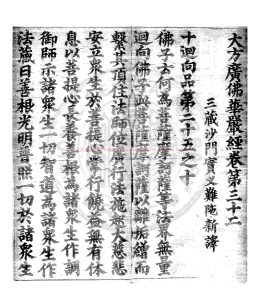 大方廣佛華嚴經卷第三十二
三藏沙門實叉難陁新譯
十迴向品第二十五之十
佛子云何爲菩薩摩訶薩等法界無量
迴向佛子此菩薩摩訶薩以離垢繒而
繫其頂住法師位廣行法施起大慈悲
安立衆生於菩提心常行饒益無有休
息以菩提心長養善根爲諸衆生作調
御師示諸衆生一切智道爲諸衆生作
法藏日善根光明普照一切於諸衆生